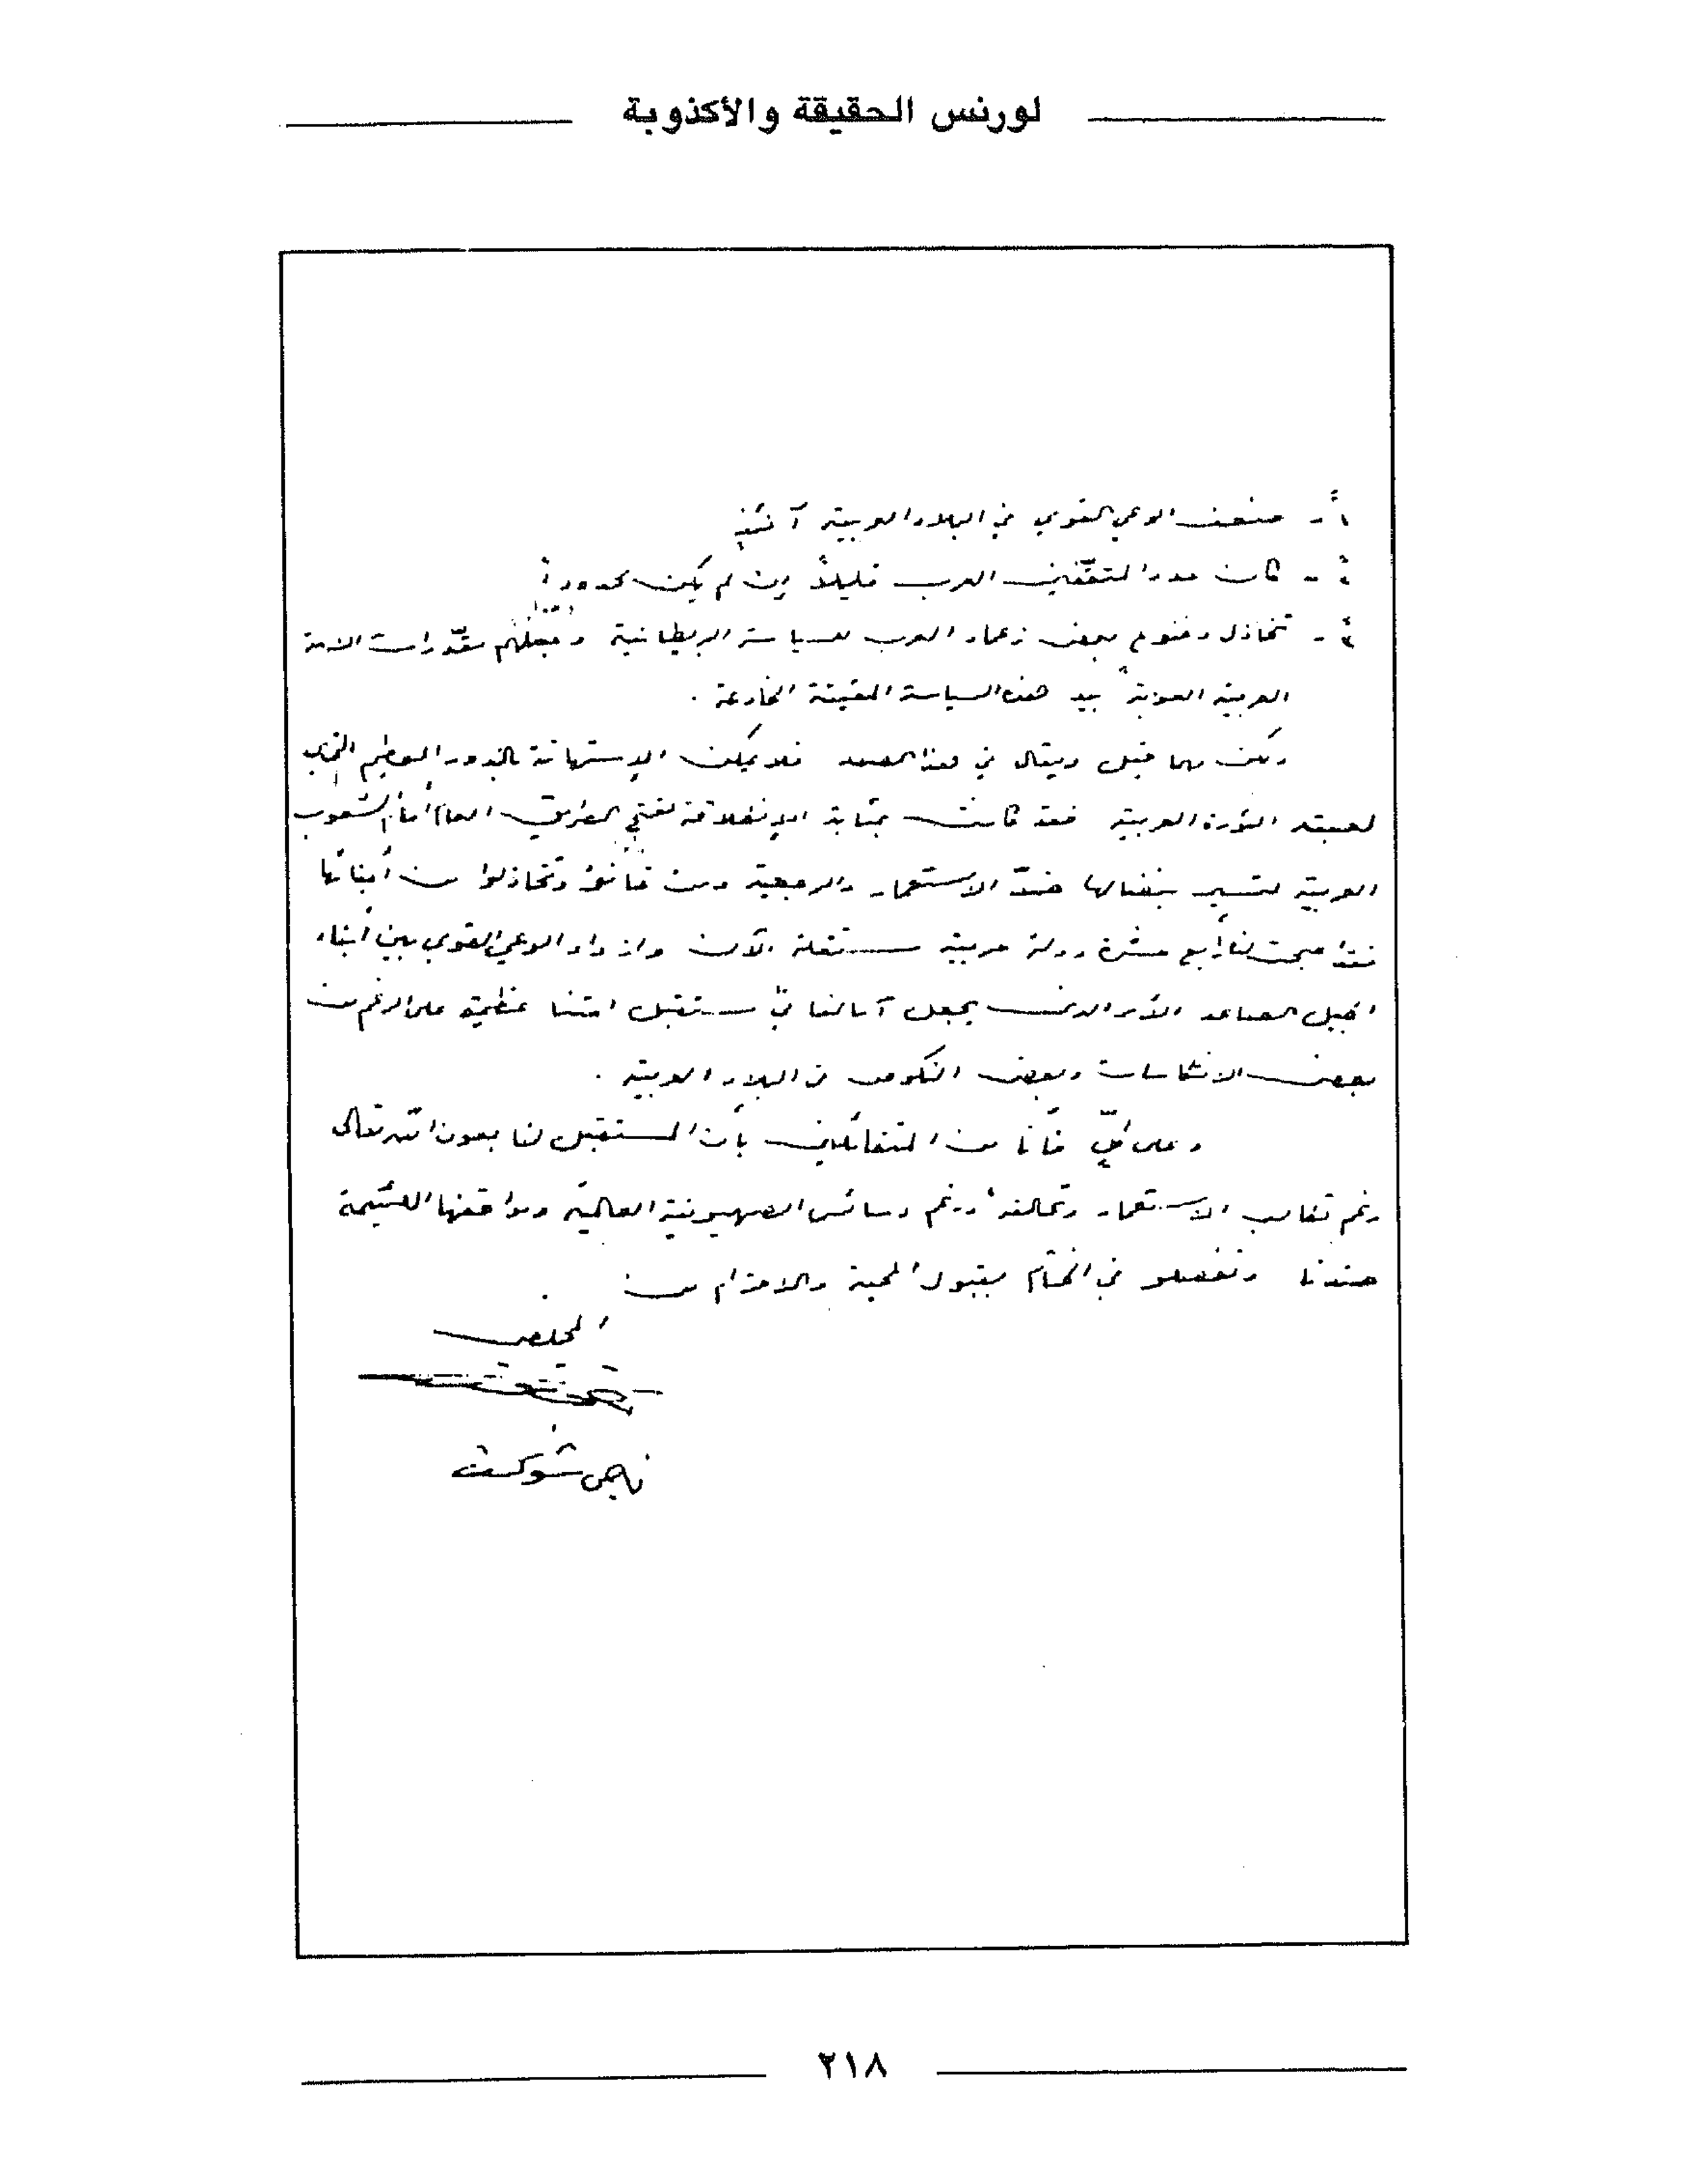 لورنس الحقيقة والأكذوبة
١ً - ضعف الوعي القومي في البلاد العربية آنئذٍ
٢ً - كان عدد المثقّفين العرب قليلاً إن لم يكن محدوداً
٣ً - تخاذل وخنوع بعض زعماء العرب للسياسة البريطانية مقدّرات الامة
العربية بيد هذه السياسة المقيتة الخادعة .
ولكن مهما قيل ويقال في هذا الصدد فلا يمكن الإستهانة بالدور العظيم الذي
لعبته الثورة العربية فقد كانت بمثابة الإنطلاقة لفتح الطريق العام أمام الشعوب
العربية لتسير بنضالها ضدّ الاستعمار والرجعية ومن وتخاذلوا من أبنائها
فقد اصبحت لنا أربع عشرة دولة عربية مستقلة الآن وازداد الوعي القومي بين أبناء
الجيل الصاعد الأمر الذي يجعل آمالنا في مستقبل امتنا عظيمة على الرغم من
بعض الانتكاسات وبعض النكوص في البلاد العربية .
وعلى كلٍّ فأنا من المتفائلين بأن المستقبل لنا بعون الله تعالى
رغم تكالب الاستعمار وتحالفه ورغم دسائس الصهيونية العالمية ومواقفها اللئيمة
ضدنا وتفضلو في الختام بقبول المحبة والاحترام من
المخلص
ناجي شوكت
٢١٨